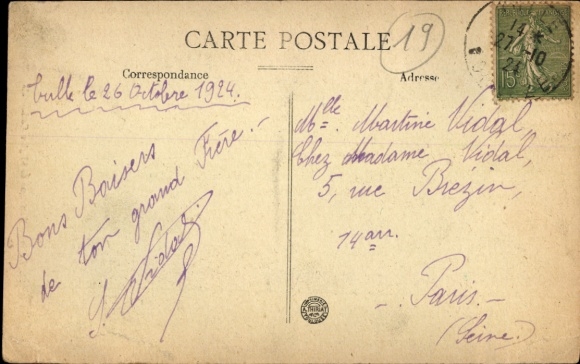 CARTE POSTALE
19
Correspondance
Adresse
Tulle le 26 Octobre 1924.
Bons Baisers
de ton grand Frère.
Vidal
Mlle. Martine Vidal,
Chez Madame Vidal,
5, rue Brézin,
14 arr.
Paris
(Seine)
27-10
15